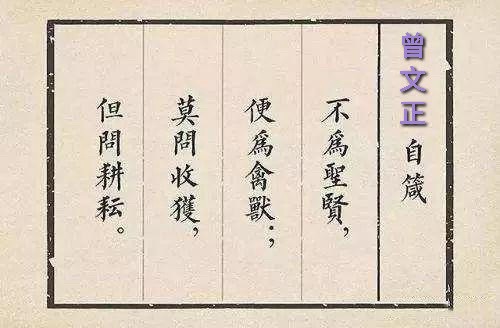 曾文正自箴
不爲聖賢，
便爲禽獸；
莫問收獲，
但問耕耘。